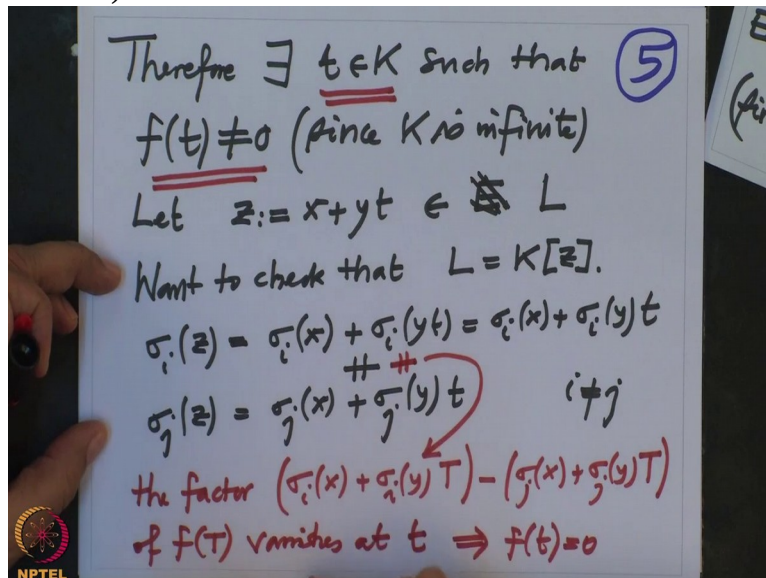 Therefore ∃ t ∈ K such that ⑤
f(t) ≠ 0 (since K is infinite)
Let z := x + yt ∈ L
Want to check that L = K[z].
σ_i(z) = σ_i(x) + σ_i(yt) = σ_i(x) + σ_i(y)t
≠ ≠
σ_j(z) = σ_j(x) + σ_j(y)t i ≠ j
the factor (σ_i(x) + σ_i(y)T) − (σ_j(x) + σ_j(y)T)
of f(T) vanishes at t ⇒ f(t) = 0
NPTEL